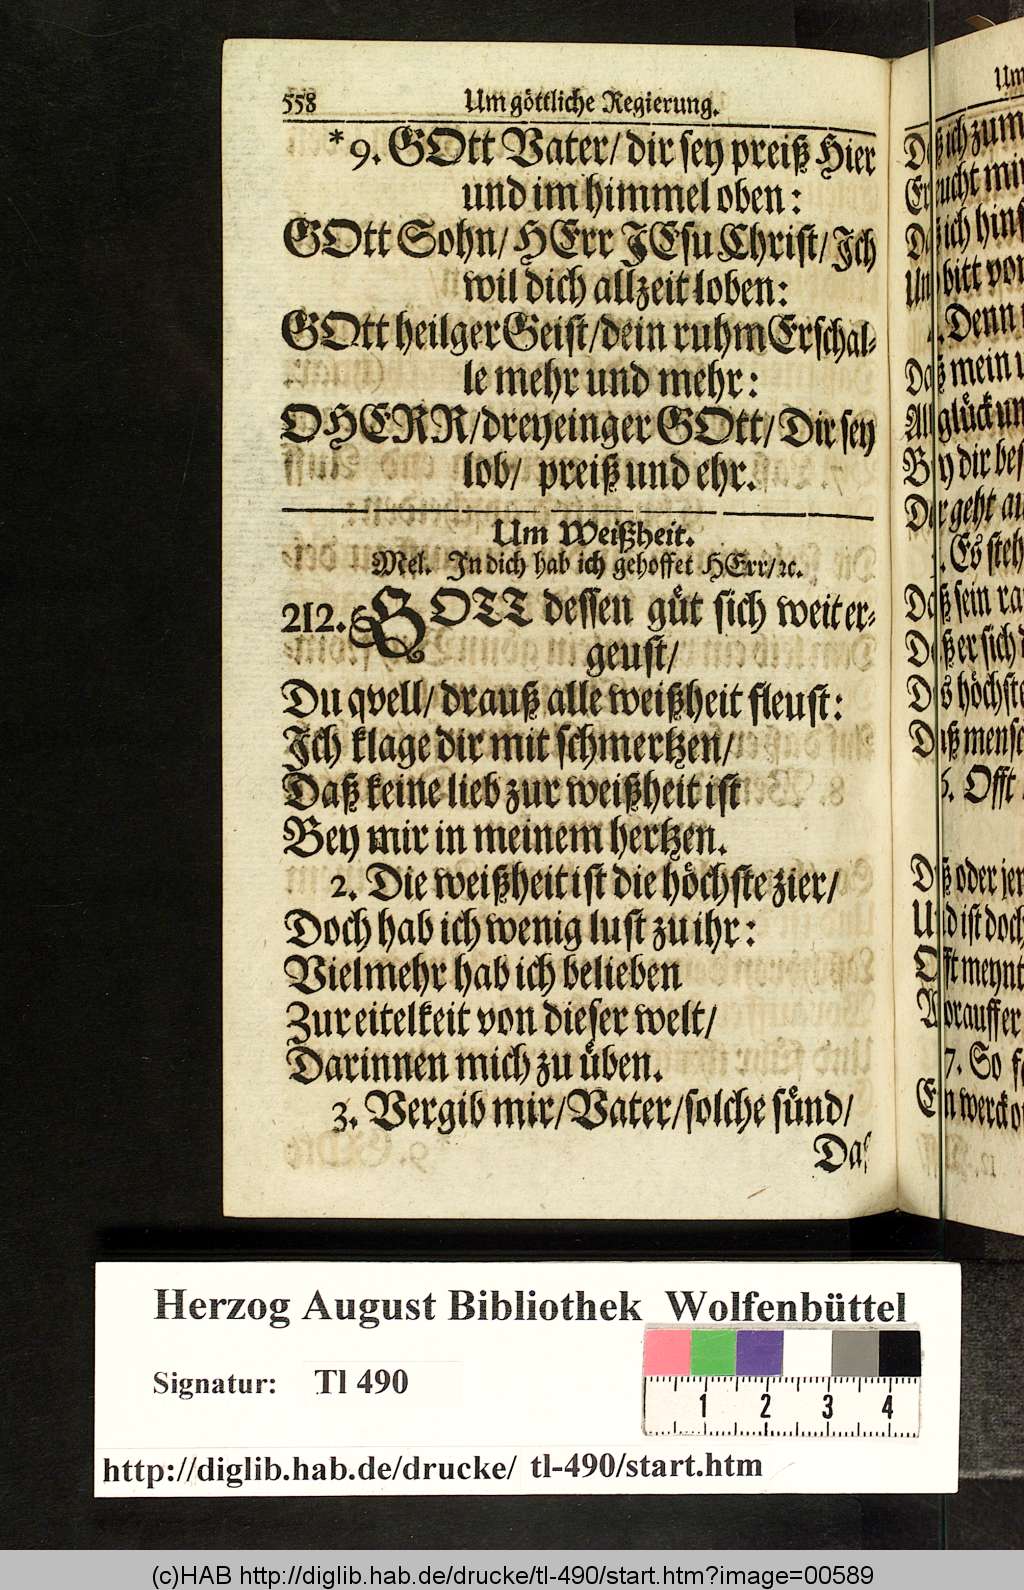 558 Um göttliche Regierung.
* 9. GOtt Vater/ dir sey preiß Hier
und im himmel oben:
GOtt Sohn/ HErr JEsu Christ/ Jch
wil dich allzeit loben:
GOtt heilger Geist/ dein ruhm Erschal-
le mehr und mehr:
O HERR/ dreyeinger GOtt/ Dir sey
lob/ preiß und ehr.
Um Weißheit.
Mel. Jn dich hab ich gehoffet HErr/ ꝛc.
212. GOTT dessen güt sich weit er-
geust/
Du qvell/ drauß alle weißheit fleust:
Jch klage dir mit schmertzen/
Daß keine lieb zur weißheit ist
Bey mir in meinem hertzen.
2. Die weißheit ist die höchste zier/
Doch hab ich wenig lust zu ihr:
Vielmehr hab ich belieben
Zur eitelkeit von dieser welt/
Darinnen mich zu üben.
3. Vergib mir/ Vater/ solche sünd/
Das
Um
ich zum
mir
ich hins
bitt von
Denn
mein
glück
dir
geht
Es steh
sein
er sich
höchste
6. Offt
oder
ist doch
meynt
7. So
werck
Herzog August Bibliothek Wolfenbüttel
Signatur: Tl 490
1 2 3 4
http://diglib.hab.de/drucke/ tl-490/start.htm
(c)HAB http://diglib.hab.de/drucke/tl-490/start.htm?image=00589